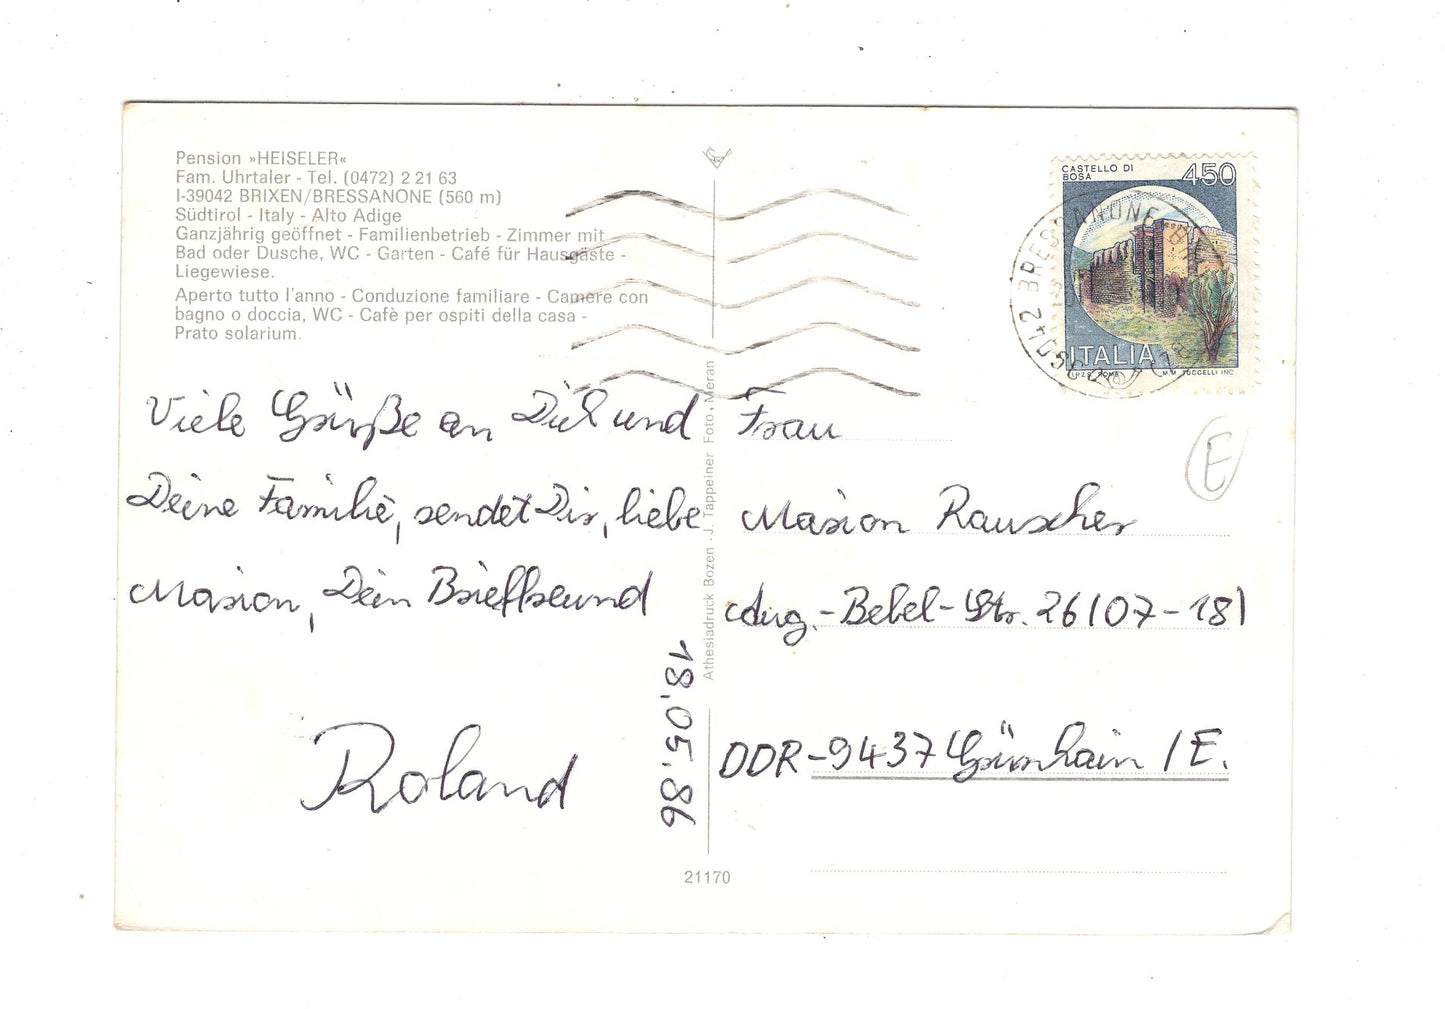 Pension »HEISELER«
Fam. Uhrtaler - Tel. (0472) 2 21 63
I-39042 BRIXEN/BRESSANONE (560 m)
Südtirol - Italy - Alto Adige
Ganzjährig geöffnet - Familienbetrieb - Zimmer mit
Bad oder Dusche, WC - Garten - Café für Hausgäste -
Liegewiese.
Aperto tutto l'anno - Conduzione familiare - Camere con
bagno o doccia, WC - Cafè per ospiti della casa -
Prato solarium.
Viele Grüße an Dich und
Deine Familie, sendet Dir, liebe
Marion, Dein Brieffreund
Roland
18.05.86
Athesiadruck Bozen - J. Tappeiner Foto, Meran
21170
CASTELLO DI
BOSA
450
ITALIA
I.P.Z.S. ROMA
M.M. TUCCELLI INC.
BRESSANONE
E
Frau
Marion Rauscher
Aug.-Bebel-Str. 26 (07-18)
DDR-9437 Grünhain / E.